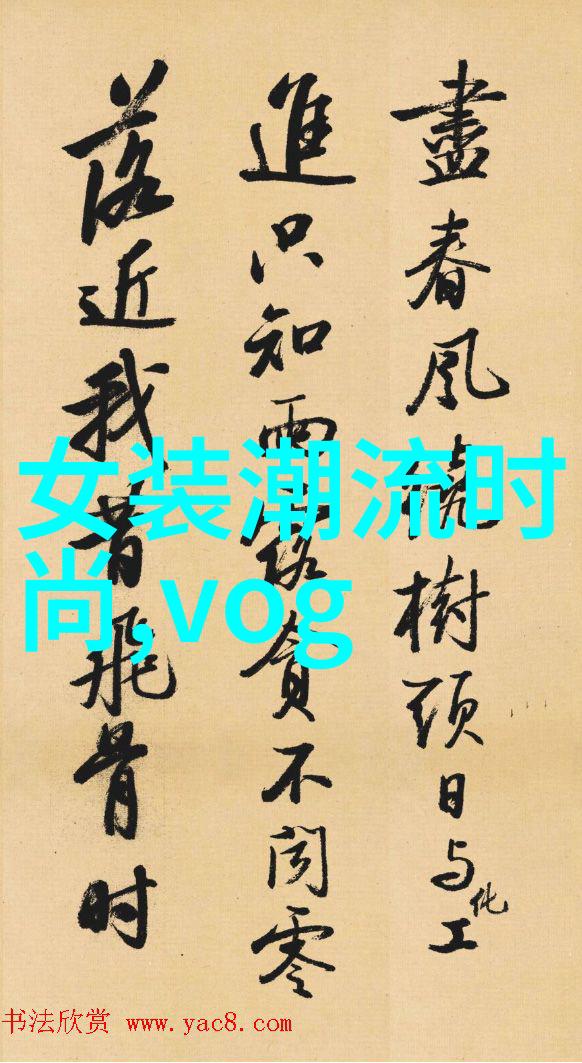 盡春風繞樹頭日与化工
進只知雨露貪不聞零
落近我昔飛骨时
女装潮流时
尚,vog
书法欣赏 www.yac8.com